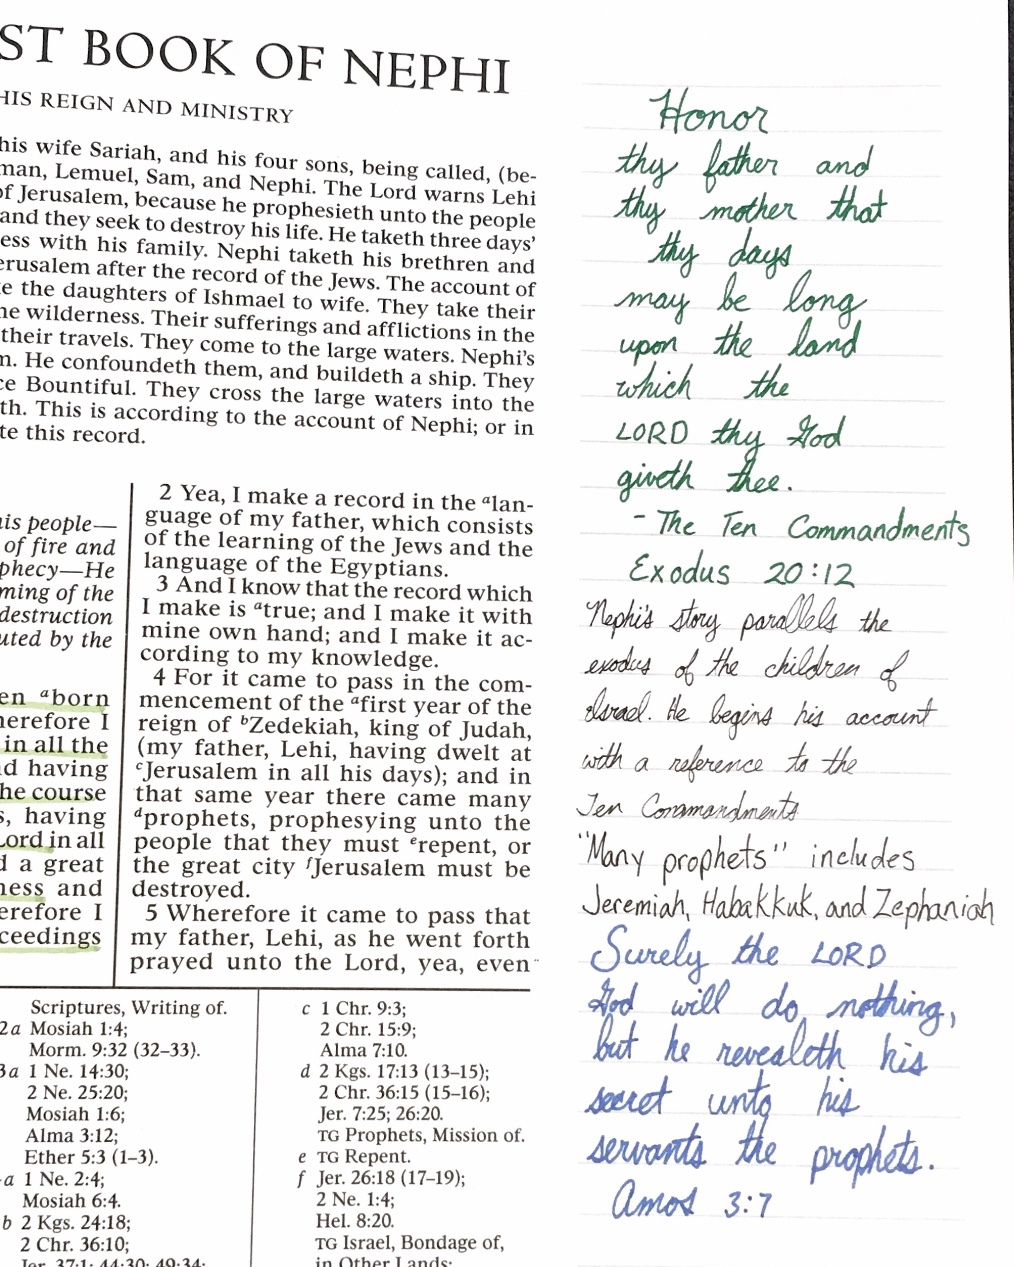 ST BOOK OF NEPHI
HIS REIGN AND MINISTRY
his wife Sariah, and his four sons, being called, (be-
man, Lemuel, Sam, and Nephi. The Lord warns Lehi
of Jerusalem, because he prophesieth unto the people
and they seek to destroy his life. He taketh three days'
ess with his family. Nephi taketh his brethren and
erusalem after the record of the Jews. The account of
e the daughters of Ishmael to wife. They take their
he wilderness. Their sufferings and afflictions in the
their travels. They come to the large waters. Nephi's
m. He confoundeth them, and buildeth a ship. They
ce Bountiful. They cross the large waters into the
th. This is according to the account of Nephi; or in
te this record.
his people—
of fire and
phecy—He
ming of the
destruction
uted by the
en aborn
herefore I
in all the
d having
he course
s, having
Lord in all
d a great
ness and
erefore I
ceedings
2 Yea, I make a record in the alan-
guage of my father, which consists
of the learning of the Jews and the
language of the Egyptians.
3 And I know that the record which
I make is atrue; and I make it with
mine own hand; and I make it ac-
cording to my knowledge.
4 For it came to pass in the com-
mencement of the afirst year of the
reign of bZedekiah, king of Judah,
(my father, Lehi, having dwelt at
cJerusalem in all his days); and in
that same year there came many
dprophets, prophesying unto the
people that they must erepent, or
the great city fJerusalem must be
destroyed.
5 Wherefore it came to pass that
my father, Lehi, as he went forth
prayed unto the Lord, yea, even
Scriptures, Writing of.
2a Mosiah 1:4;
Morm. 9:32 (32–33).
3a 1 Ne. 14:30;
2 Ne. 25:20;
Mosiah 1:6;
Alma 3:12;
Ether 5:3 (1–3).
a 1 Ne. 2:4;
Mosiah 6:4.
b 2 Kgs. 24:18;
2 Chr. 36:10;
Jer. 37:1; 44:30; 49:34;
c 1 Chr. 9:3;
2 Chr. 15:9;
Alma 7:10.
d 2 Kgs. 17:13 (13–15);
2 Chr. 36:15 (15–16);
Jer. 7:25; 26:20.
TG Prophets, Mission of.
e TG Repent.
f Jer. 26:18 (17–19);
2 Ne. 1:4;
Hel. 8:20.
TG Israel, Bondage of,
in Other Lands;
Honor
thy father and
thy mother that
thy days
may be long
upon the land
which the
LORD thy God
giveth thee.
- The Ten Commandments
Exodus 20:12
Nephi's story parallels the
exodus of the children of
Israel. He begins his account
with a reference to the
Ten Commandments
"Many prophets" includes
Jeremiah, Habakkuk, and Zephaniah
Surely the LORD
God will do nothing,
but he revealeth his
secret unto his
servants the prophets.
Amos 3:7